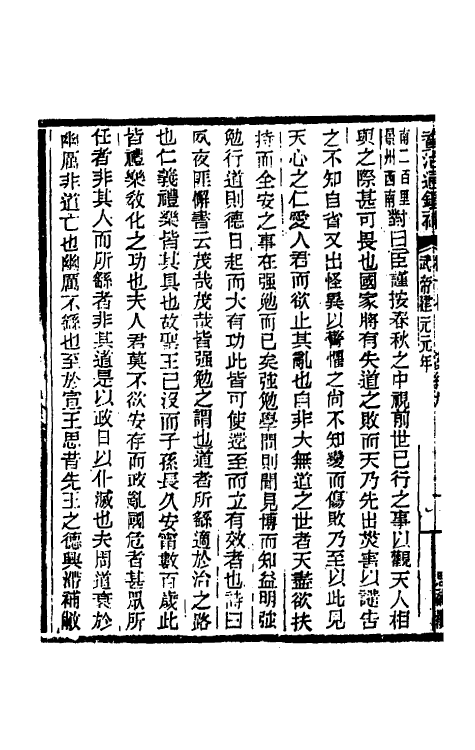 資治通鑑補
武帝建元元年
南二百里
州西南對曰臣謹按春秋之中視前世已行之事以觀天人相
與之際甚可畏也國家將有失道之敗而天乃先出災害以譴告
之不知自省又出怪異以警懼之尚不知變而傷敗乃至以此見
天心之仁愛人君而欲止其亂也自非大無道之世者天盡欲扶
持而全安之事在强勉而已矣强勉學問則聞見博而知益明强
勉行道則德日起而大有功此皆可使還至而立有效者也詩曰
夙夜匪懈書云茂哉茂哉皆强勉之謂也道者所繇適於治之路
也仁義禮樂皆其具也故聖王已沒而子孫長久安甯數百歲此
皆禮樂敎化之功也夫人君莫不欲安存而政亂國危者甚眾所
任者非其人而所繇者非其道是以政日以仆滅也夫周道衰於
幽厲非道亡也幽厲不繇也至於宣王思昔先王之德興滯補敝